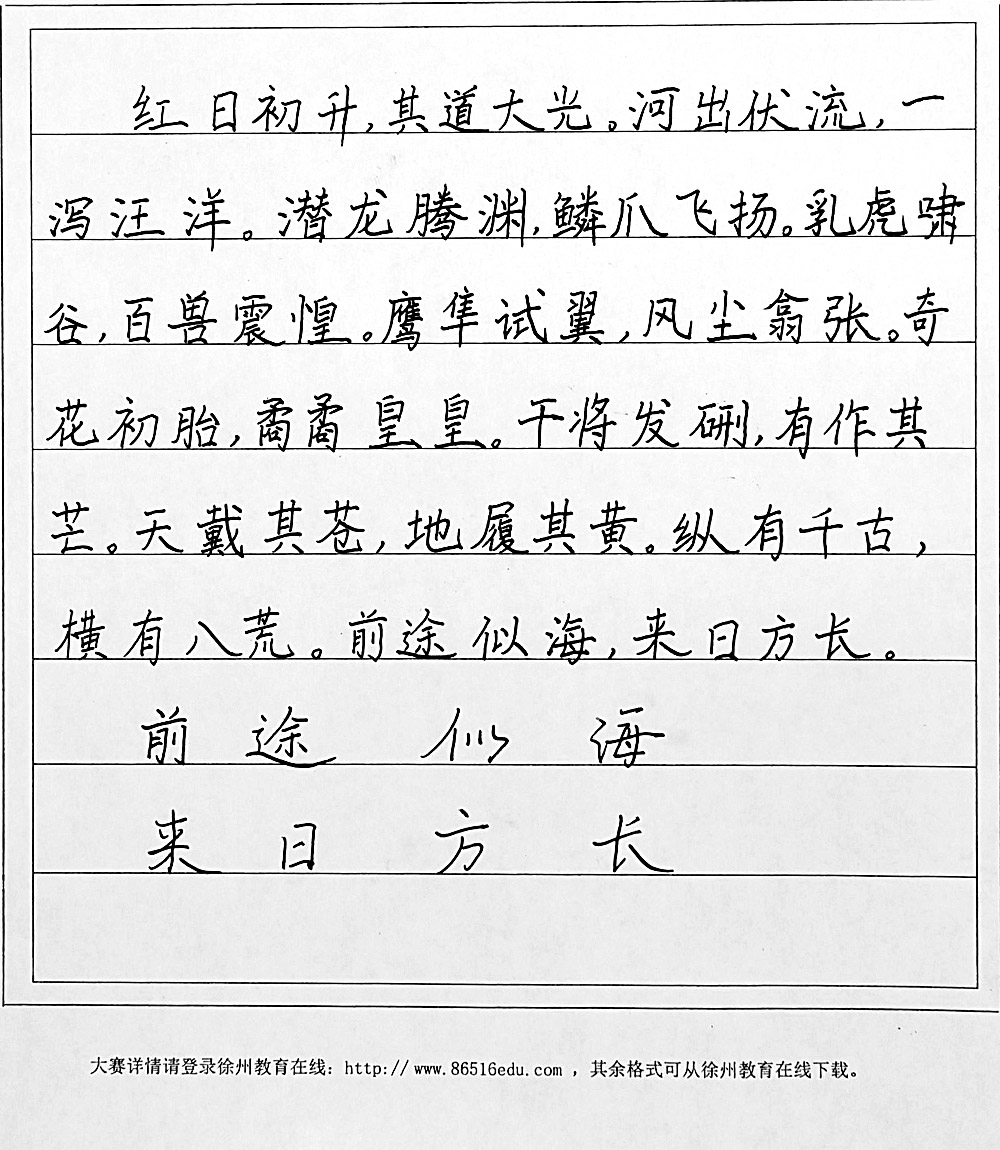 红日初升,其道大光。河出伏流,一
泻汪洋。潜龙腾渊,鳞爪飞扬。乳虎啸
谷,百兽震惶。鹰隼试翼,风尘翕张。奇
花初胎,矞矞皇皇。干将发硎,有作其
芒。天戴其苍,地履其黄。纵有千古,
横有八荒。前途似海,来日方长。
前途似海
来日方长
大赛详情请登录徐州教育在线：http://www.86516edu.com ，其余格式可从徐州教育在线下载。